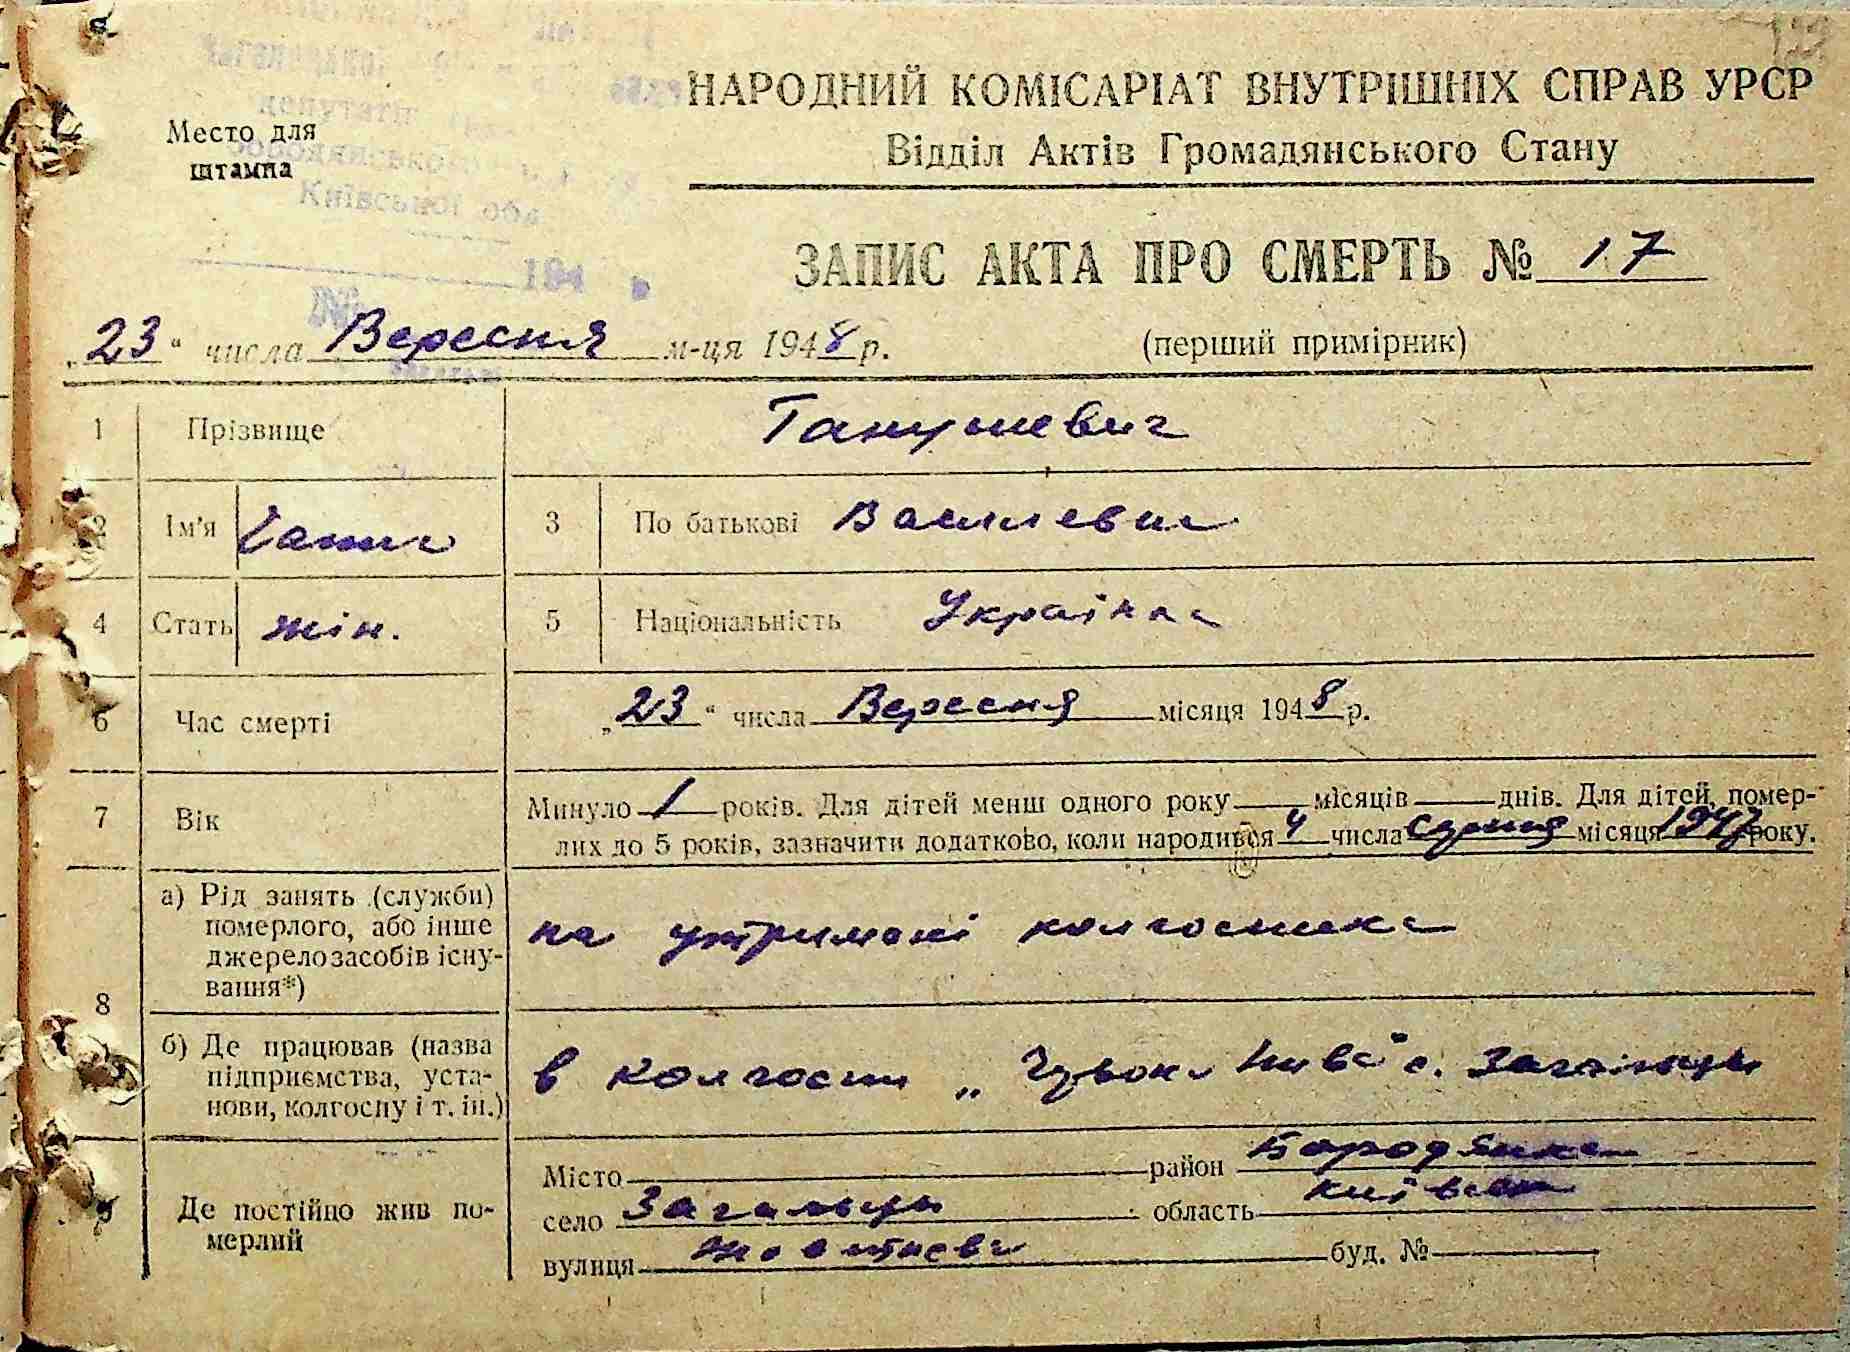 НАРОДНИЙ КОМІСАРІАТ ВНУТРІШНІХ СПРАВ УРСР
Відділ Актів Громадянського Стану
Место для
штампа
депутатів
Бородянського
Київської обл
194 р
№
ЗАПИС АКТА ПРО СМЕРТЬ № 17
„23“ числа Вересня м-ця 1948 р.
(перший примірник)
1 Прізвище Ганушевич
2 Ім'я 3 По батькові Василевна
4 Стать жін. 5 Національність Українка
6 Час смерті „23“ числа Вересня місяця 1948 р.
7 Вік Минуло 1 років. Для дітей менш одного року місяців днів. Для дітей, помер-
лих до 5 років, зазначити додатково, коли народився 4 числа серпня місяця 1947 року.
8
а) Рід занять (служби)
померлого, або інше
джерело засобів існу-
вання*)
на утримані колгоспника
б) Де працював (назва
підприємства, уста-
нови, колгоспу і т. ін.)
в колгоспі „Червона Нива" с. Загальці
9 Де постійно жив по-
мерлий
Місто район Бородянка
село Загальці область Київська
вулиця Жовтнева буд. №